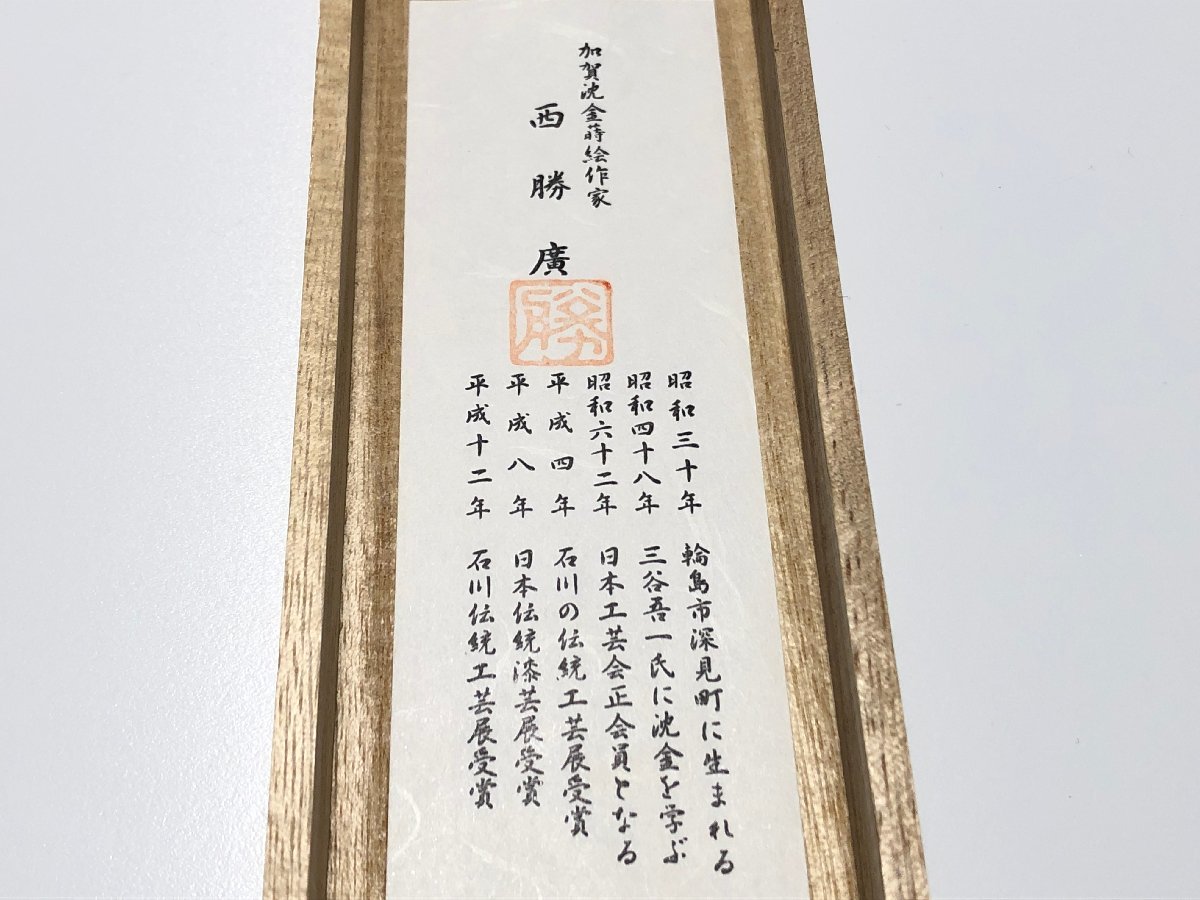 加賀沈金蒔絵作家
西勝廣
勝
昭和三十年 輪島市深見町に生まれる
昭和四十八年 三谷吾一氏に沈金を学ぶ
昭和六十二年 日本工芸会正会員となる
平成四年 石川の伝統工芸展受賞
平成八年 日本伝統漆芸展受賞
平成十二年 石川伝統工芸展受賞